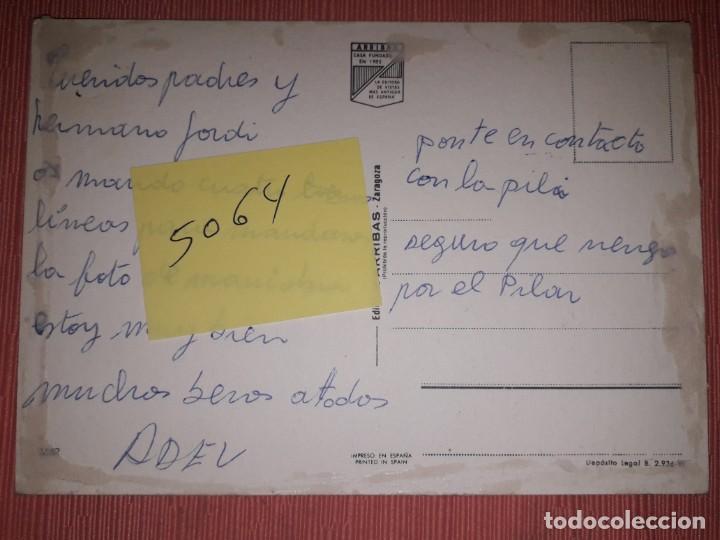 Queridos padres y
hermano Jordi
os mando cuatro
líneas para mandaros
la foto de
estoy muy bien
muchos besos a todos
ADEL
5064
ARRIBAS
CASA FUNDADA
EN 1905
LA EDITORA
DE VISTAS
MAS ANTIGUA
DE ESPAÑA
ARRIBAS - Zaragoza
(Prohibida la reproducción)
ponte en contacto
con la pila
seguro que vengo
por el Pilar
IMPRESO EN ESPAÑA
PRINTED IN SPAIN
Depósito Legal B. 2.936
todocoleccion
todocoleccion.net